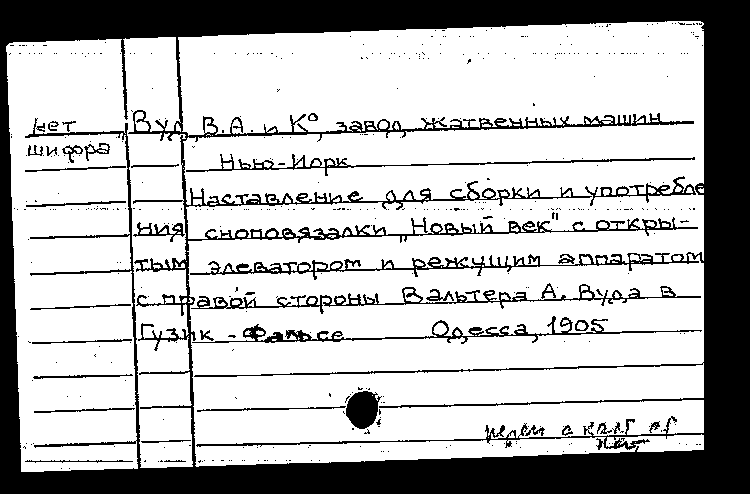 нет Вуд, В.А. и Кº, завод жатвенных машин
шифора Нью-Йорк
Наставление для сборки и употребле
ния сноповязалки „Новый век" с откры-
тым элеватором и режущим аппаратом
с правой стороны Вальтера А. Вуда в
Гузик-Фальсе Одесса, 1905